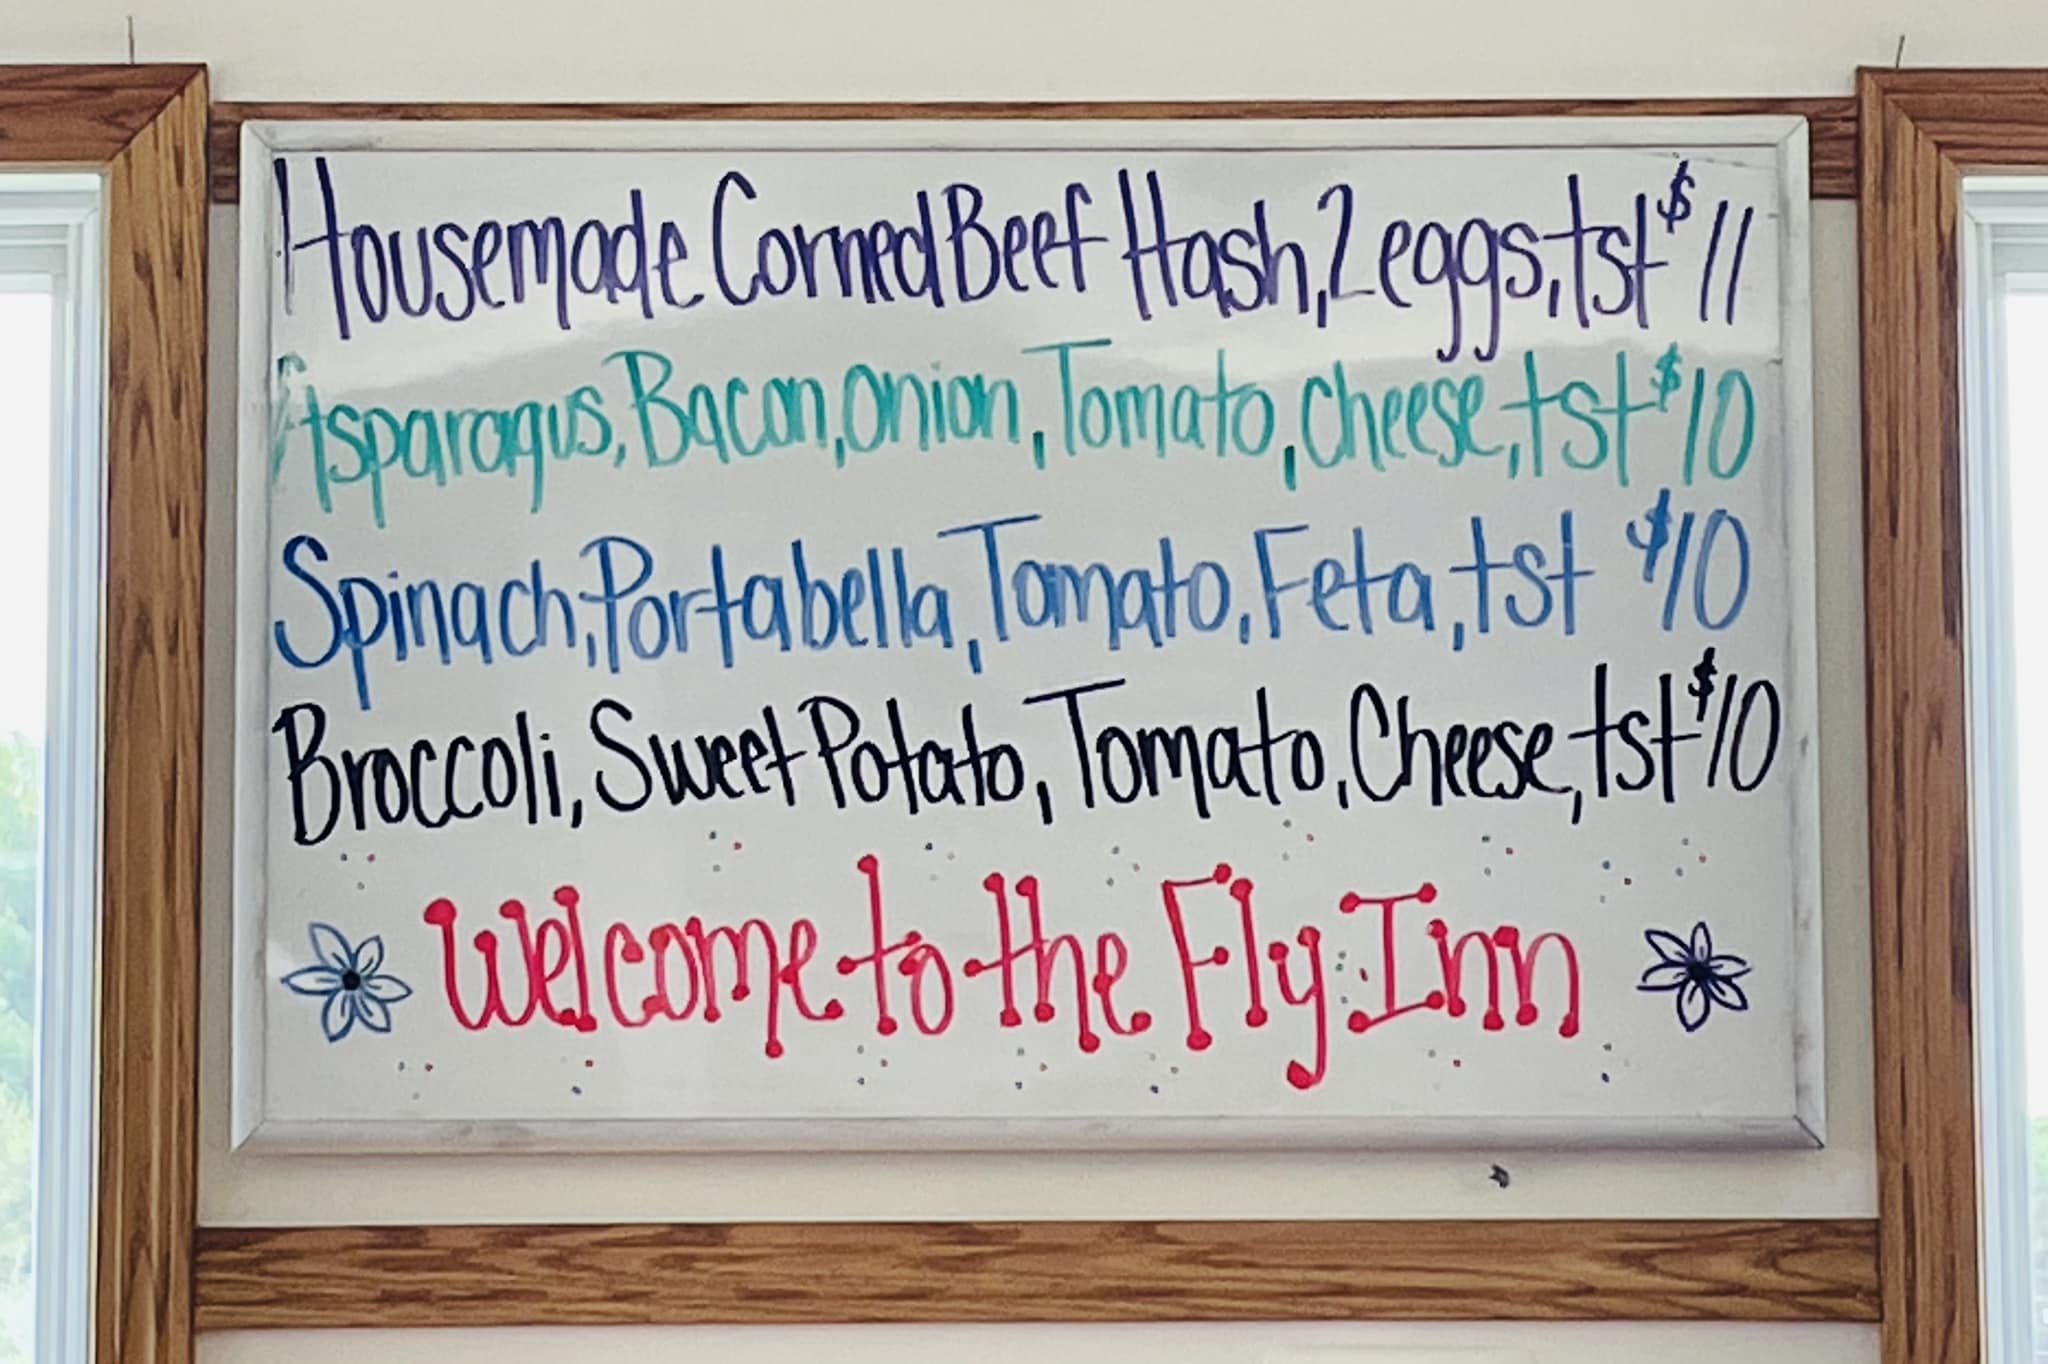 Housemade Corned Beef Hash, 2 eggs, tst $11
Asparagus, Bacon, onion, Tomato, cheese, tst $10
Spinach, Portabella, Tomato, Feta, tst $10
Broccoli, Sweet Potato, Tomato, Cheese, tst $10
Welcome to the Fly Inn